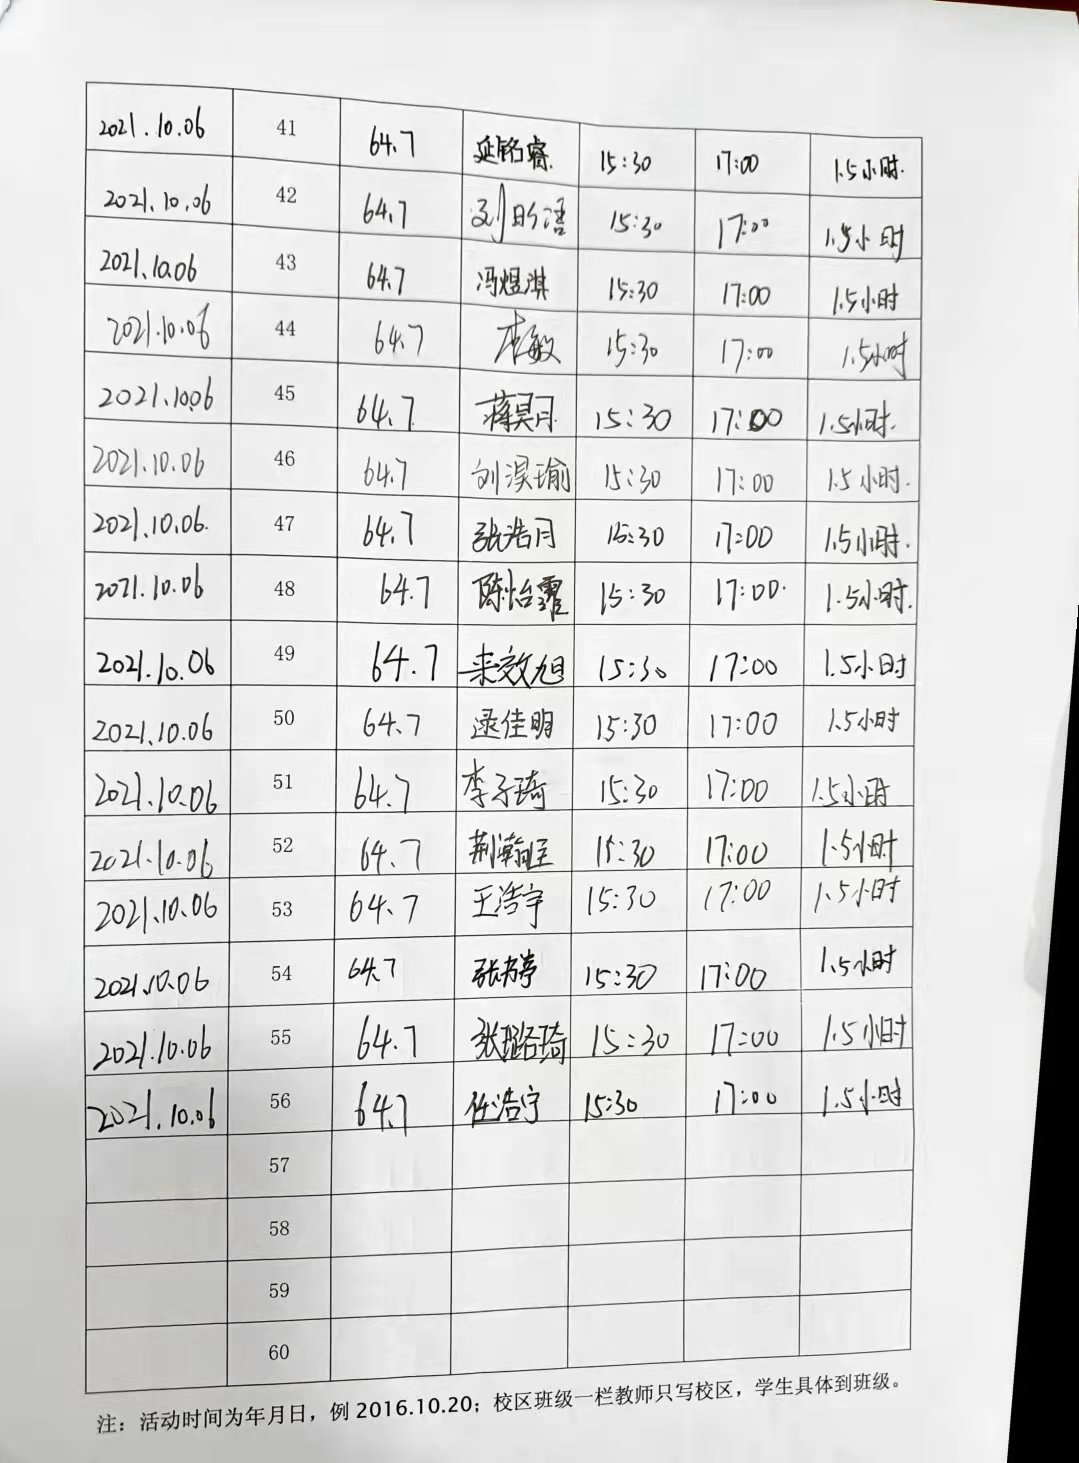 2021.10.06 41 64.7 延铭睿. 15:30 17:00 1.5小时.
2021.10.06 42 64.7 刘昕语 15:30 17:00 1.5小时
2021.10.06 43 64.7 冯煜淇 15:30 17:00 1.5小时
2021.10.06 44 64.7 李敏 15:30 17:00 1.5小时
2021.10.06 45 64.7 蒋昊月. 15:30 17:00 1.5小时.
2021.10.06 46 64.7 刘淏瑜 15:30 17:00 1.5小时.
2021.10.06. 47 64.7 张浩月 15:30 17:00 1.5小时.
2021.10.06 48 64.7 陈怡霏 15:30 17:00. 1.5小时.
2021.10.06 49 64.7 来效旭 15:30 17:00 1.5小时
2021.10.06 50 64.7 逯佳明 15:30 17:00 1.5小时
2021.10.06 51 64.7 李子琦 15:30 17:00 1.5小时
2021.10.06 52 64.7 荆瀚 15:30 17:00 1.5小时
2021.10.06 53 64.7 王浩宇 15:30 17:00 1.5小时
2021.10.06 54 64.7 张 15:30 17:00 1.5小时
2021.10.06 55 64.7 张璐琦 15:30 17:00 1.5小时
2021.10.06 56 64.7 任浩宇 15:30 17:00 1.5小时
57
58
59
60
注：活动时间为年月日，例 2016.10.20；校区班级一栏教师只写校区，学生具体到班级。